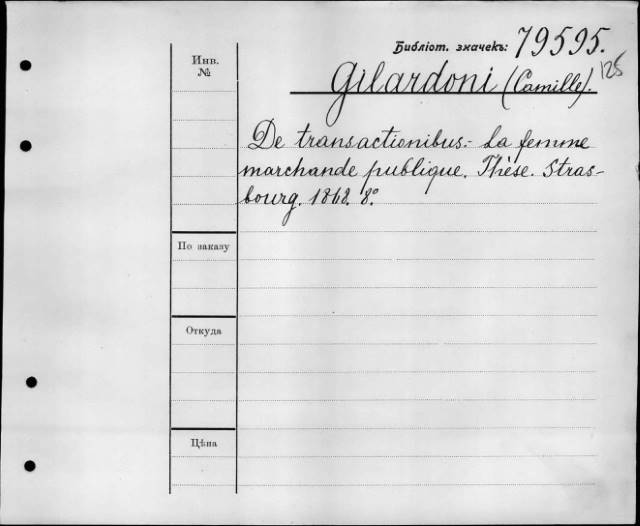 Библіот. значекъ: 79595.
125
Инв.
№
Gilardoni (Camille).
De transactionibus.- La femme
marchande publique. Thèse. Stras-
bourg. 1862. 8°.
По заказу
Откуда
Цѣна